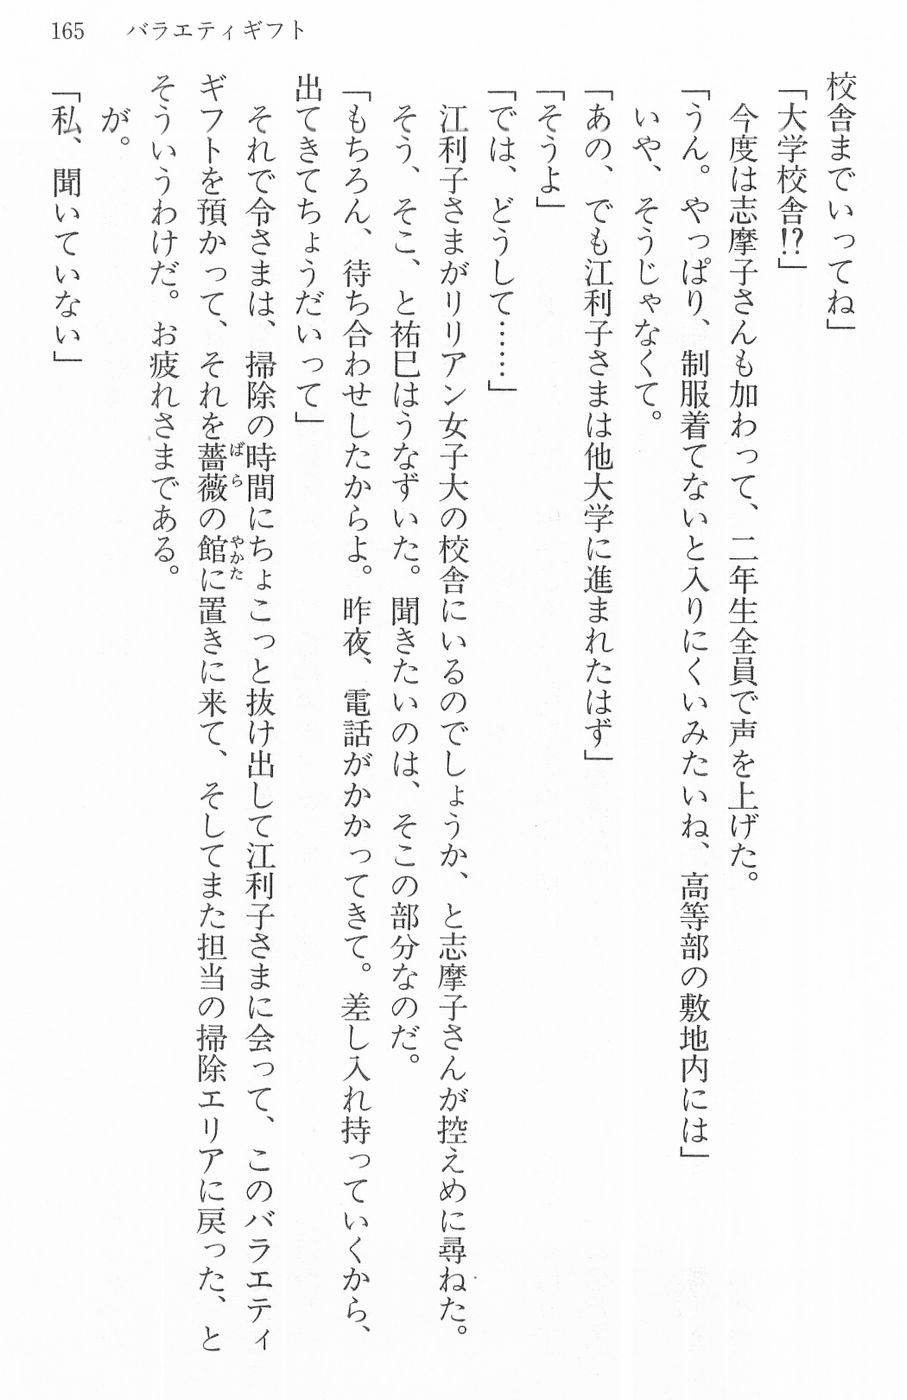 165　バラエティギフト
校舎までいってね」
「大学校舎!?」
　今度は志摩子さんも加わって、二年生全員で声を上げた。
「うん。やっぱり、制服着てないと入りにくいみたいね、高等部の敷地内には」
　いや、そうじゃなくて。
「あの、でも江利子さまは他大学に進まれたはず」
「そうよ」
「では、どうして……」
　江利子さまがリリアン女子大の校舎にいるのでしょうか、と志摩子さんが控えめに尋ねた。
　そう、そこ、と祐巳はうなずいた。聞きたいのは、そこの部分なのだ。
「もちろん、待ち合わせしたからよ。昨夜、電話がかかってきて。差し入れ持っていくから、
出てきてちょうだいって」
　それで令さまは、掃除の時間にちょこっと抜け出して江利子さまに会って、このバラエティ
ギフトを預かって、それを薔薇の館に置きに来て、そしてまた担当の掃除エリアに戻った、と
ばら
やかた
そういうわけだ。お疲れさまである。
　が。
「私、聞いていない」